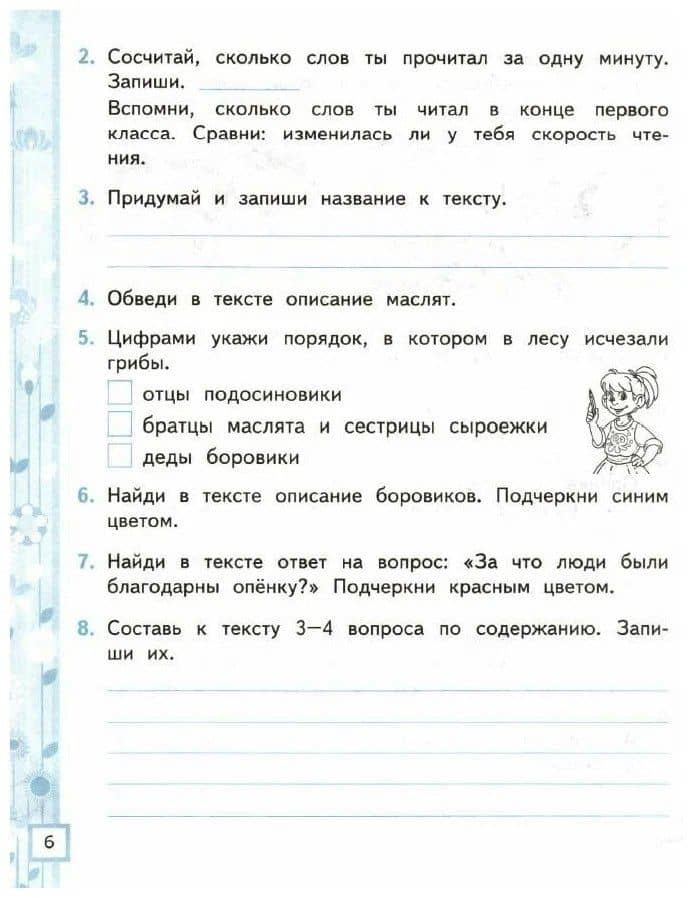 2. Сосчитай, сколько слов ты прочитал за одну минуту.
Запиши.
Вспомни, сколько слов ты читал в конце первого
класса. Сравни: изменилась ли у тебя скорость чте-
ния.
3. Придумай и запиши название к тексту.
4. Обведи в тексте описание маслят.
5. Цифрами укажи порядок, в котором в лесу исчезали
грибы.
отцы подосиновики
братцы маслята и сестрицы сыроежки
деды боровики
6. Найди в тексте описание боровиков. Подчеркни синим
цветом.
7. Найди в тексте ответ на вопрос: «За что люди были
благодарны опёнку?» Подчеркни красным цветом.
8. Составь к тексту 3—4 вопроса по содержанию. Запи-
ши их.
6